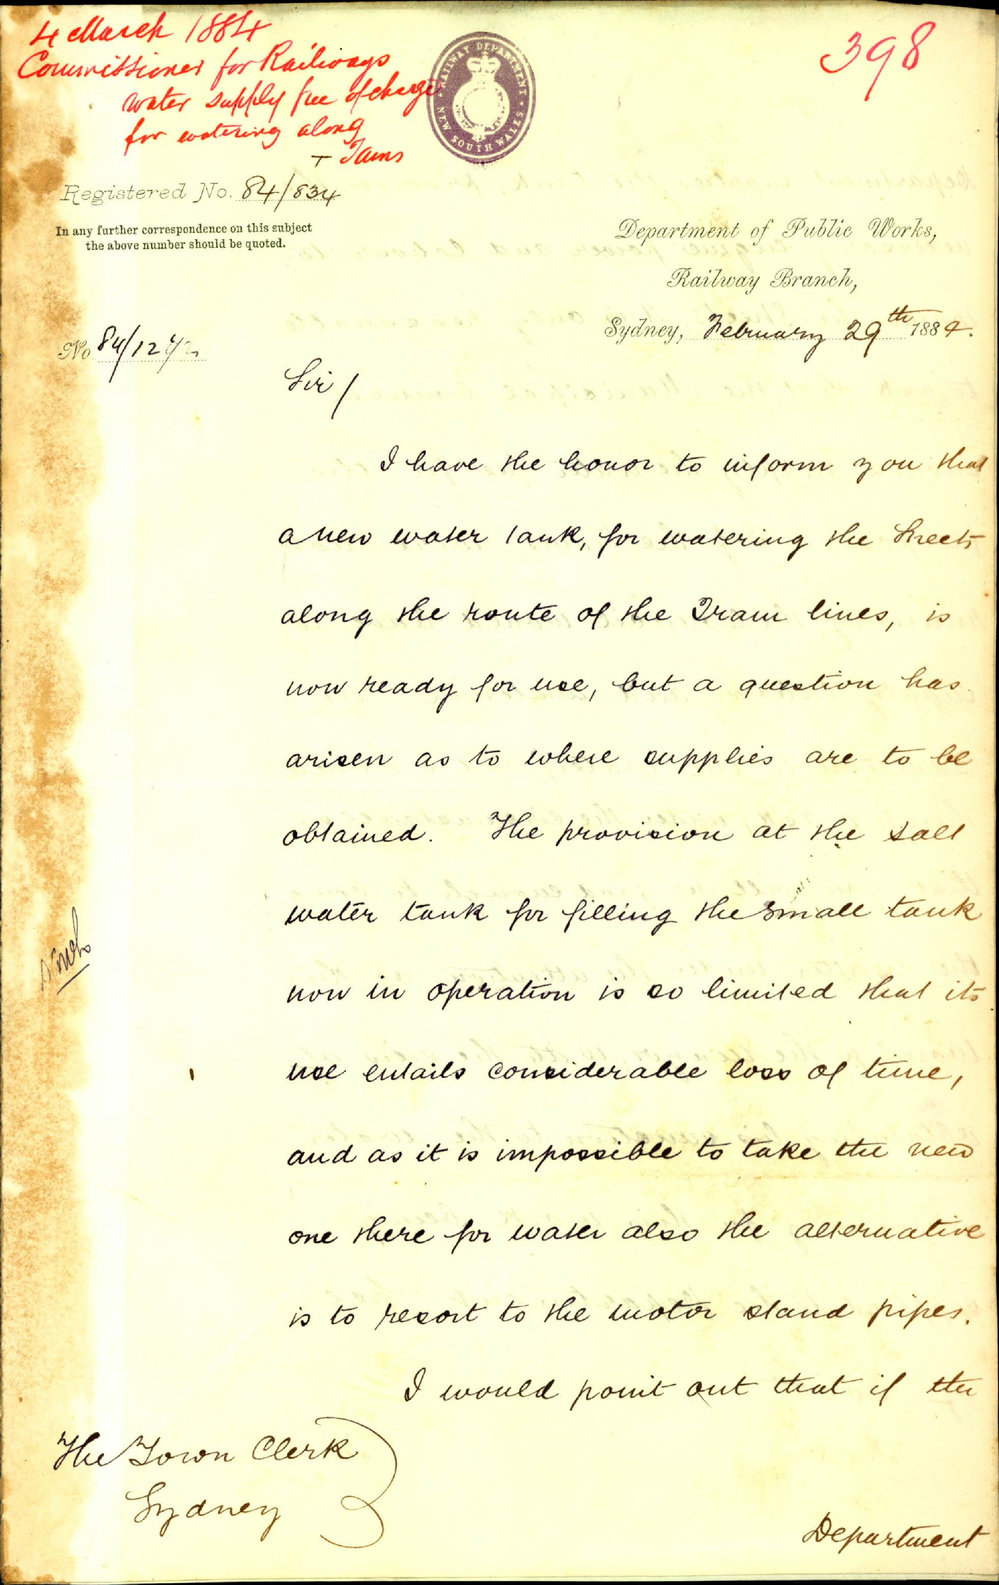 4 March 1884
Commissioner for Railways
water supply free of charge
for watering along
Trams
398
RAILWAY DEPARTMENT
NEW SOUTH WALES
Registered No. 84/834
In any further correspondence on this subject
the above number should be quoted.
Department of Public Works,
Railway Branch,
Sydney, February 29th 1884.
No 84/12
Sir/
I have the honor to inform you that
a new water tank, for watering the Streets
along the route of the Tram lines, is
now ready for use, but a question has
arisen as to where supplies are to be
obtained. The provision at the salt
water tank for filling the small tank
now in operation is so limited that its
use entails considerable loss of time,
and as it is impossible to take the new
one there for water also the alternative
is to resort to the motor stand pipes.
I would point out that if the
The Town Clerk
Sydney
Department